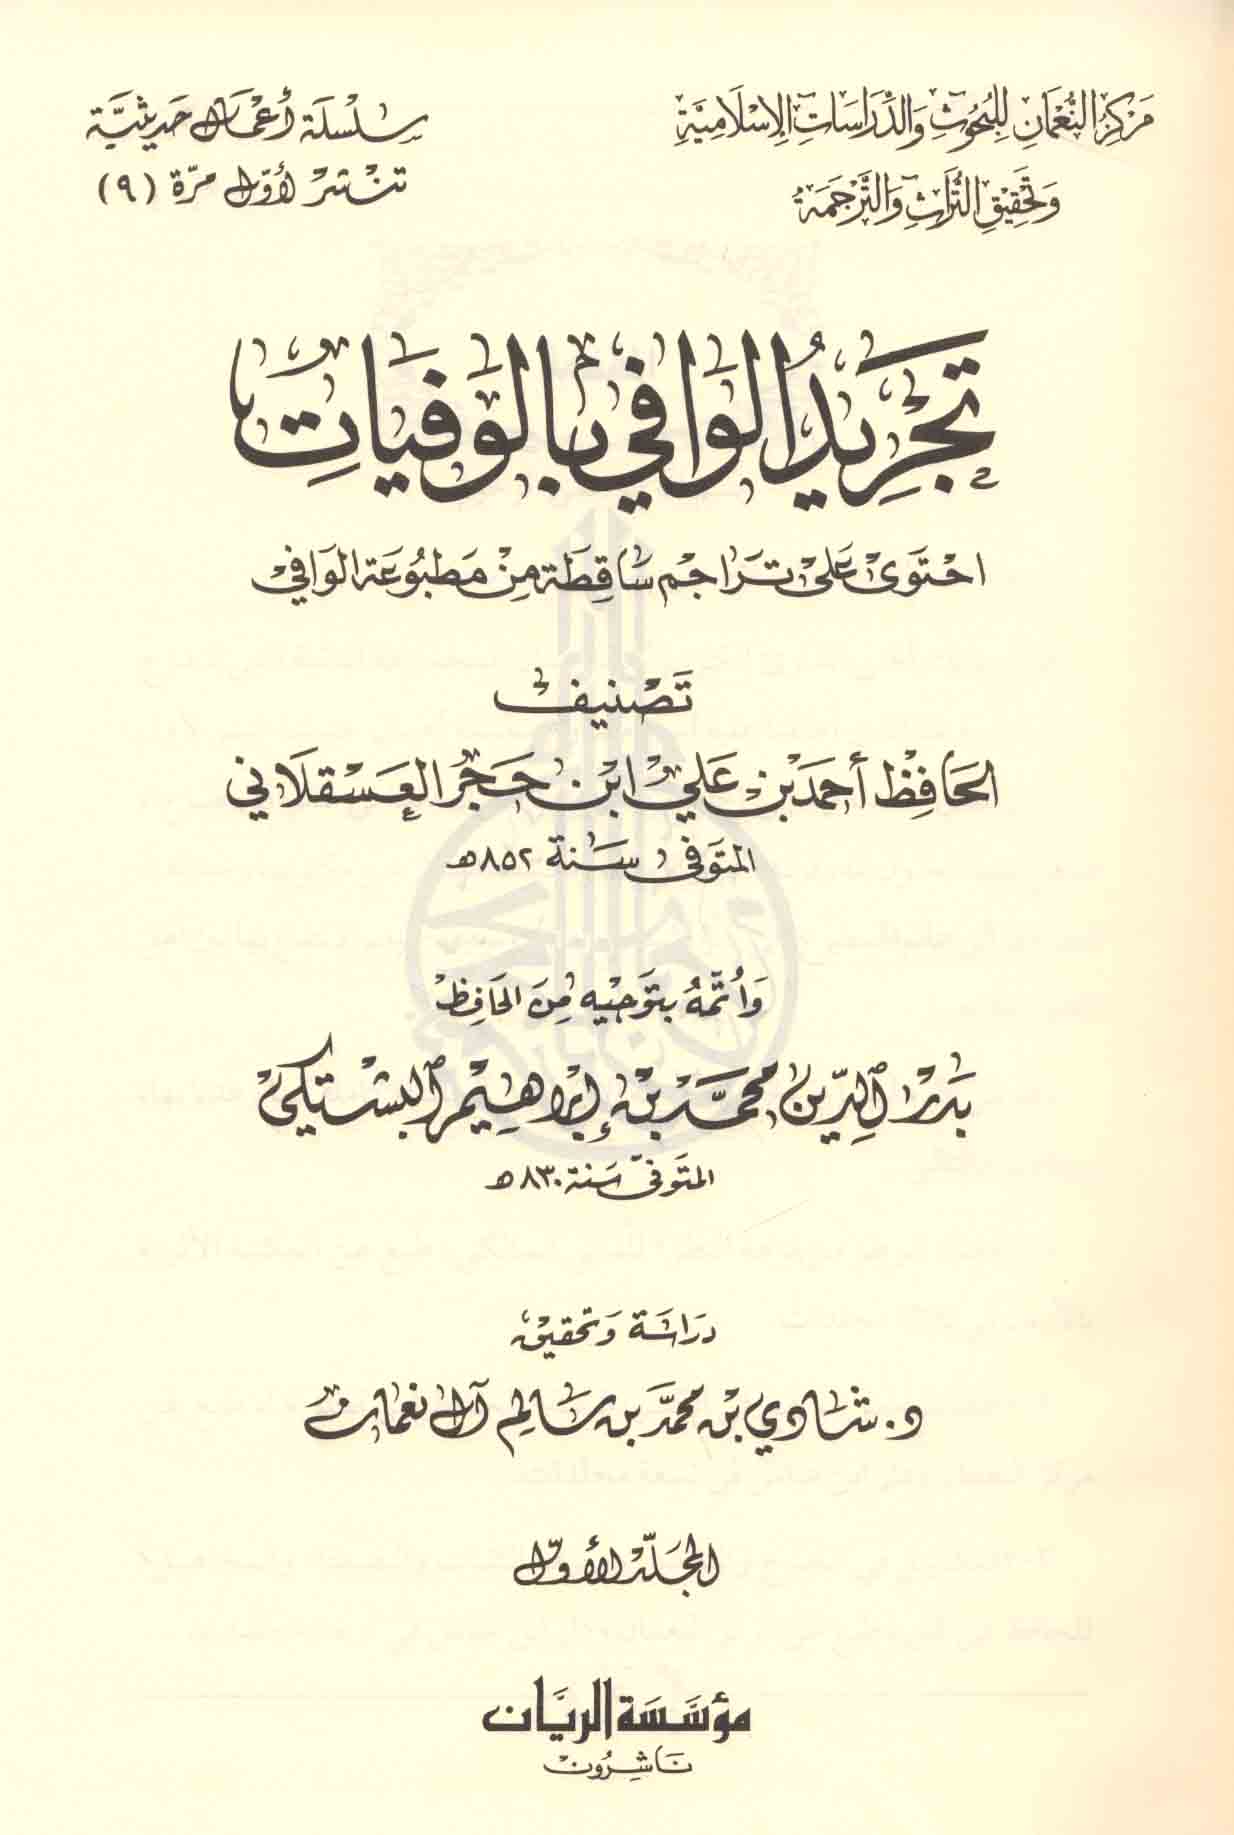 مَركز النُّعْمَانِ لِلبُحُوثِ وَالدِّرَاسَاتِ الإِسْلَامِيَّةِ
وَتَحْقِيقِ التُّرَاثِ وَالتَّرْجَمَةِ
سِلْسِلَة أَعْمَال حَدِيثِيَّة
تنشر لأوّل مرّة (٩)
تَجْرِيدُ الوَافِي بِالوَفَيَاتِ
احْتَوَى عَلَى تَرَاجِم سَاقِطَة مِنْ مَطبُوعَة الوَافِي
تَصْنِيف
الحَافِظ أَحمَد بن عَلي ابْن حَجَر العَسْقَلَاني
المتَوَفى سَنة ٨٥٢هـ
وَأَتمَّهُ بتَوجيه مِنَ الحَافِظ
بَدر الدِّين محمَّد بن إبْرَاهِيم البشتكي
المتَوَفّى سَنة ٨٣٠هـ
دِرَاسَة وَتحقيق
د. شَادي بْن محمَّد بن سَالِم آل نعمَان
المجَلّد الأوّل
مؤسَّسَة الريَّان
نَاشِرُون